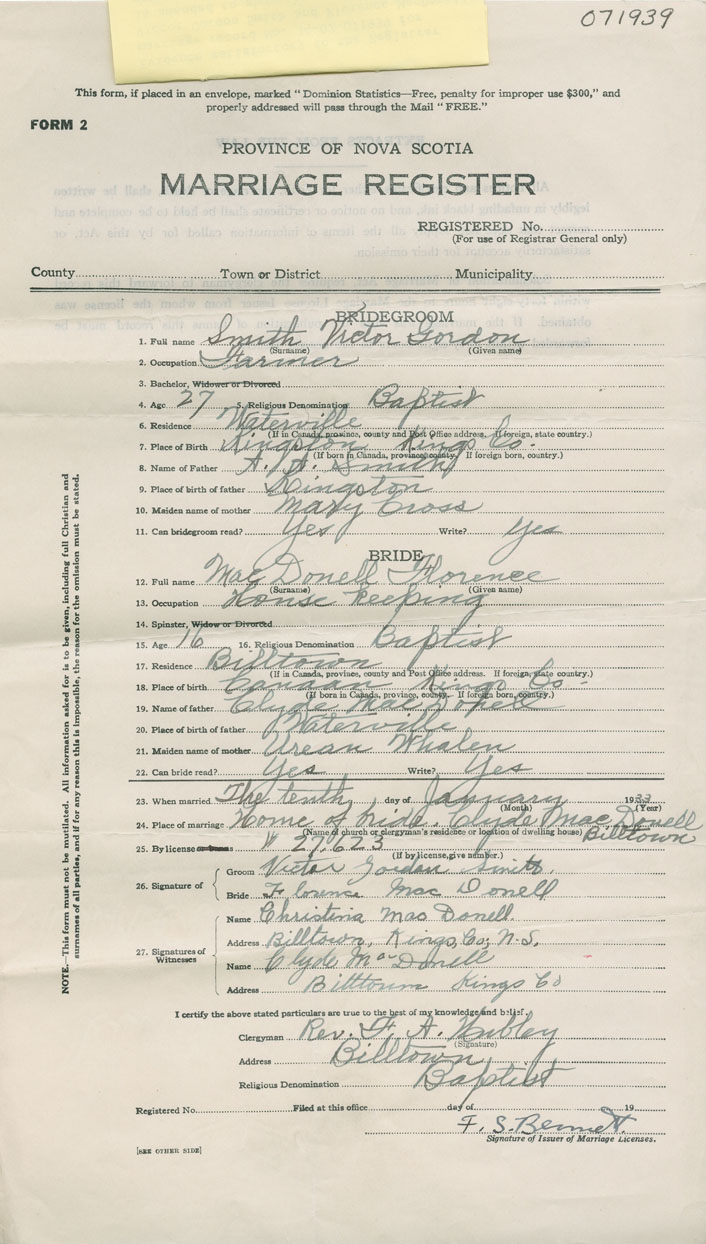 071939
This form, if placed in an envelope, marked "Dominion Statistics—Free, penalty for improper use $300," and
properly addressed will pass through the Mail "FREE."
FORM 2
PROVINCE OF NOVA SCOTIA
MARRIAGE REGISTER
REGISTERED No.
(For use of Registrar General only)
County Town or District Municipality
BRIDEGROOM
1. Full name Smith Victor Gordon
(Surname) (Given name)
2. Occupation Farmer
3. Bachelor, Widower or Divorced
4. Age 27 5. Religious Denomination Baptist
6. Residence Waterville
(If in Canada, province, county and Post Office address. If foreign, state country.)
7. Place of Birth Kingston Kings Co.
(If born in Canada, province, county. If foreign born, country.)
8. Name of Father A. A. Smith
9. Place of birth of father Kingston
10. Maiden name of mother Mary Cross
11. Can bridegroom read? Yes Write? Yes
BRIDE
12. Full name MacDonell Florence
(Surname) (Given name)
13. Occupation House keeping
14. Spinster, Widow or Divorced
15. Age 16 16. Religious Denomination Baptist
17. Residence Billtown
(If in Canada, province, county and Post Office address. If foreign, state country.)
18. Place of birth Canaan Kings Co.
(If born in Canada, province, county. If foreign born, country.)
19. Name of father Clyde MacDonell
20. Place of birth of father Waterville
21. Maiden name of mother Urean Whalen
22. Can bride read? Yes Write? Yes
23. When married The tenth day of January 1933
(Month) (Year)
24. Place of marriage Home of bride. Clyde MacDonell
(Name of church or clergyman's residence or location of dwelling house) Billtown
25. By license or banns # 27623
(If by license, give number.)
26. Signature of
Groom Victor Gordan Smith.
Bride Florence MacDonell
27. Signatures of Witnesses
Name Christina MacDonell
Address Billtown, Kings, Co; N.S.
Name Clyde MacDonell
Address Billtown Kings Co
I certify the above stated particulars are true to the best of my knowledge and belief.
Clergyman Rev. F. A. Hubley
(Signature)
Address Billtown
Religious Denomination Baptist
Registered No. Filed at this office day of 19
F. S. Bennett.
Signature of Issuer of Marriage Licenses.
[SEE OTHER SIDE]
NOTE.—This form must not be mutilated. All information asked for is to be given, including full Christian and
surnames of all parties, and if for any reason this is impossible, the reason for the omission must be stated.